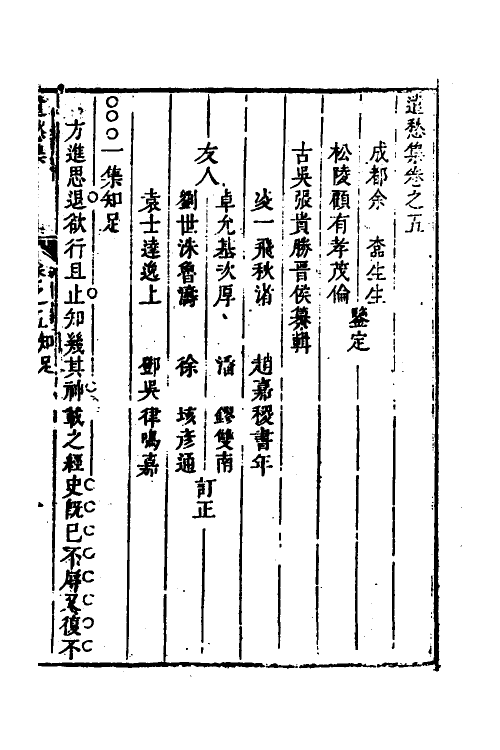 遣愁集卷之五
成都余　　生生
松陵顧有孝茂倫
鑒定
古吳張貴勝晉侯纂輯
凌一飛秋渚　趙嘉稷書年
友人
卓允基次厚　潘鏐雙南
劉世洙魯濤　徐　垓彥通
訂正
袁士達逸上　鄧吳律鳴嘉
一集知足
方進思退欲行且止知幾其神載之經史既已不屑又復不
遣愁集　卷之五知足